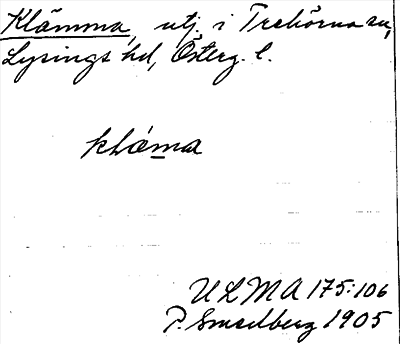 Klämma, utj. i Trehörna sn,
Lysings hd, Österg. l.
kläma
ULMA 175:106
P. Smedberg 1905